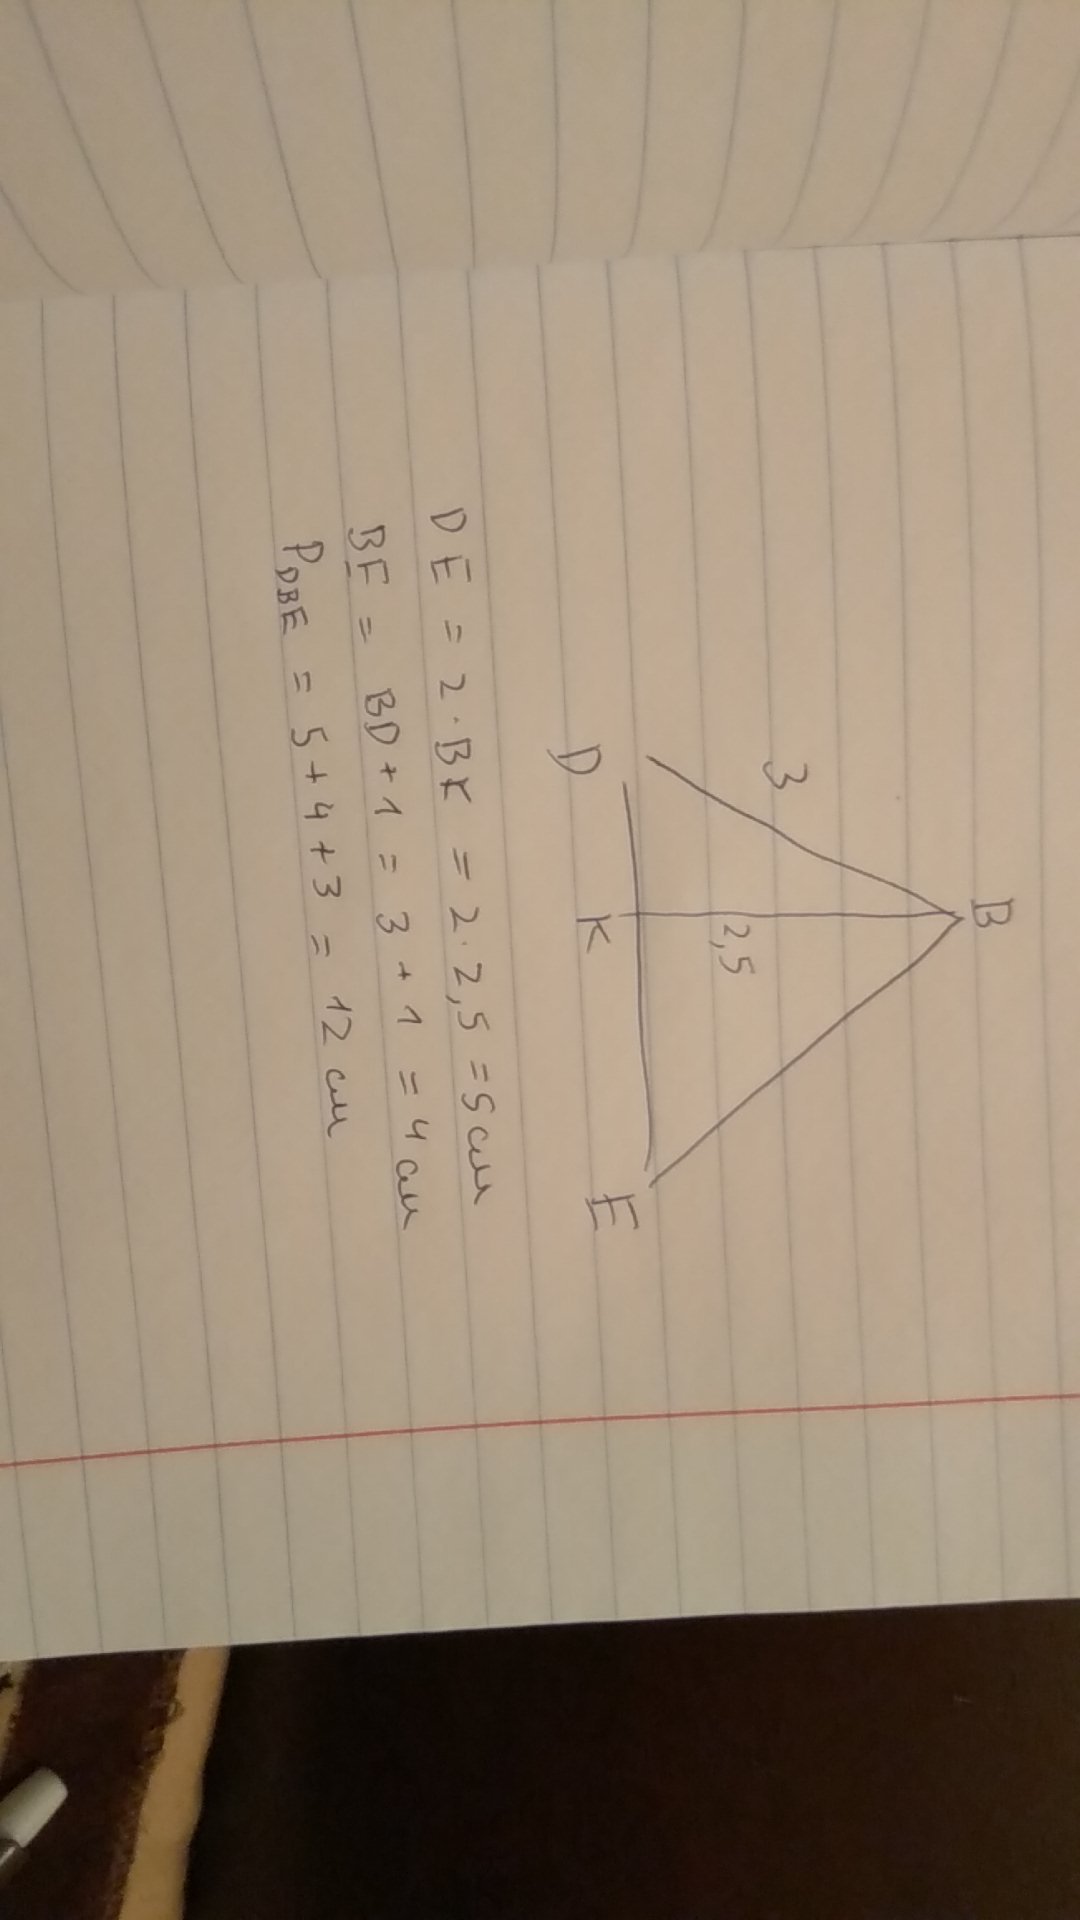 B
3
2,5
D
K
E
DE = 2·BK = 2·2,5 = 5 см
BE = BD+1 = 3+1 = 4 см
P_DBE = 5+4+3 = 12 см